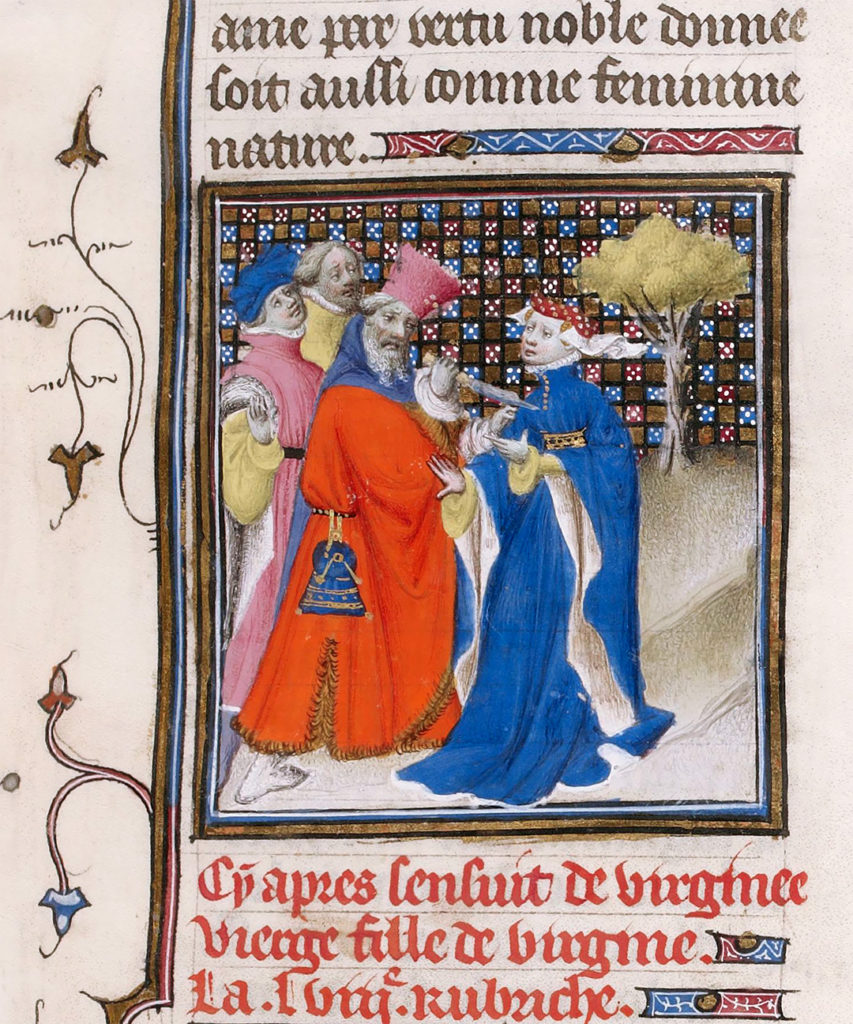 ame par vertu noble donnee
soit aussi comme feminine
nature.
Cy apres sensuit de virginee
vierge fille de virgine.
La .lviij.e rubriche.